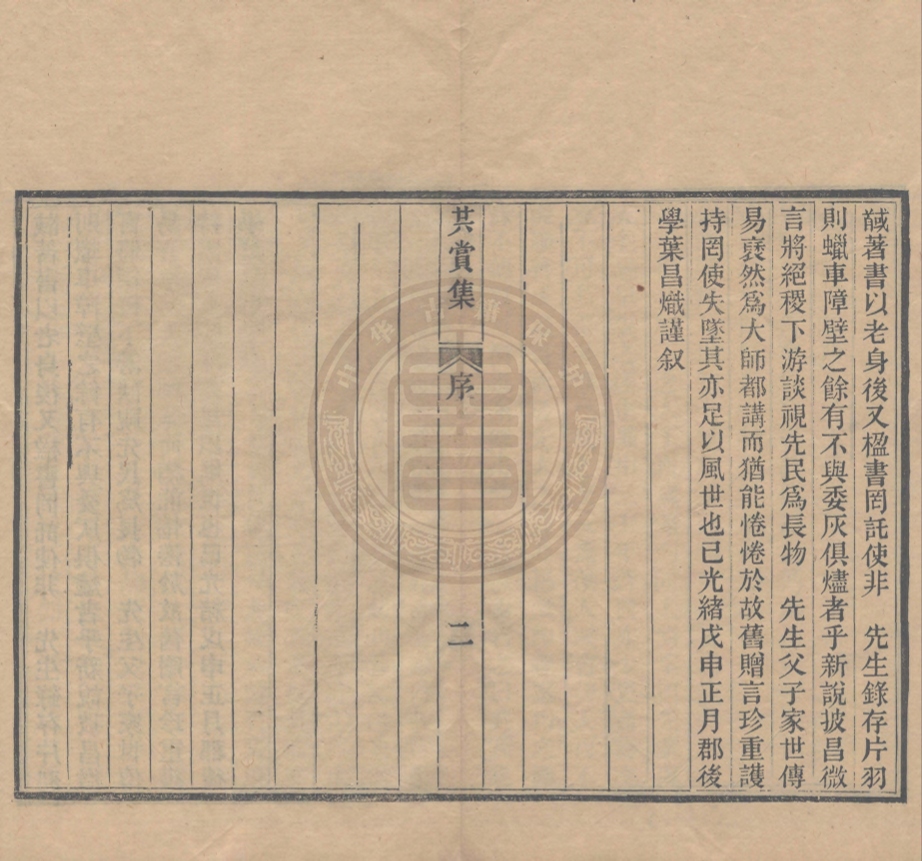 馘著書以老身後又楹書罔託使非　先生錄存片羽
則蠟車障壁之餘有不與委灰俱燼者乎新說披昌微
言將絕稷下游談視先民爲長物　先生父子家世傳
易裦然爲大師都講而猶能惓惓於故舊贈言珍重護
持罔使失墜其亦足以風世也已光緒戊申正月郡後
學葉昌熾謹叙
共賞集　序　二